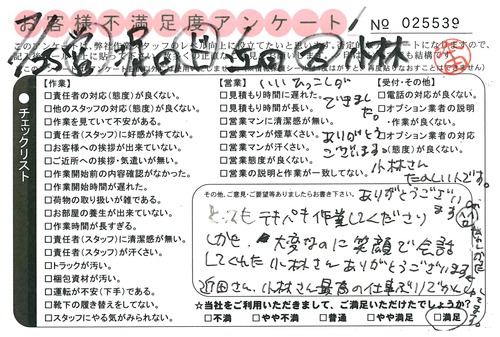 お客様不満足度アンケート
No 025539
小林
チェックリスト
【作業】
□責任者の対応(態度)が良くない。
□他のスタッフの対応(態度)が良くない。
□作業を見ていて不安がある。
□責任者(スタッフ)に好感が持てない。
□お客様への挨拶が出来ていない。
□ご近所への挨拶・気遣いが無い。
□作業開始前の内容確認がなかった。
□作業開始時間が遅れた。
□荷物の取り扱いが雑である。
□お部屋の養生が出来ていない。
□作業時間が長すぎる。
□責任者(スタッフ)に清潔感が無い。
□責任者(スタッフ)が汗くさい。
□トラックが汚い。
□梱包資材が汚い。
□運転が不安(下手)である。
□靴下の履き替えをしてない。
□スタッフにやる気がみられない。
【営業】
□見積もり時間に遅れた。
□見積もり時間が長い。
□営業マンに清潔感が無い。
□営業マンが煙草くさい。
□営業マンが汗くさい。
□営業態度が良くない。
□営業の説明と作業が一致してない。
【受付・その他】
□電話の対応(態度)が良くない。
□オプション業者の説明
・作業が良くない。
□オプション業者の対応
(態度)が良くない。
いいひっこしが
できました。
ありがとう
ございます。
小林さん
たのしい人です。
その他、ご意見・ご要望等ありましたらお書き下さい。
ありがとうござい
ます
とってもテキパキ作業してくださり
しかも、大変なのに笑顔で会話
してくれた小林さんありがとうございます
近田さん、小林さん最高の仕事ぶりでかんしゃ
★当社をご利用いただきまして、ご満足いただけたでしょうか?
□不満 □やや不満 □普通 □やや満足 □満足